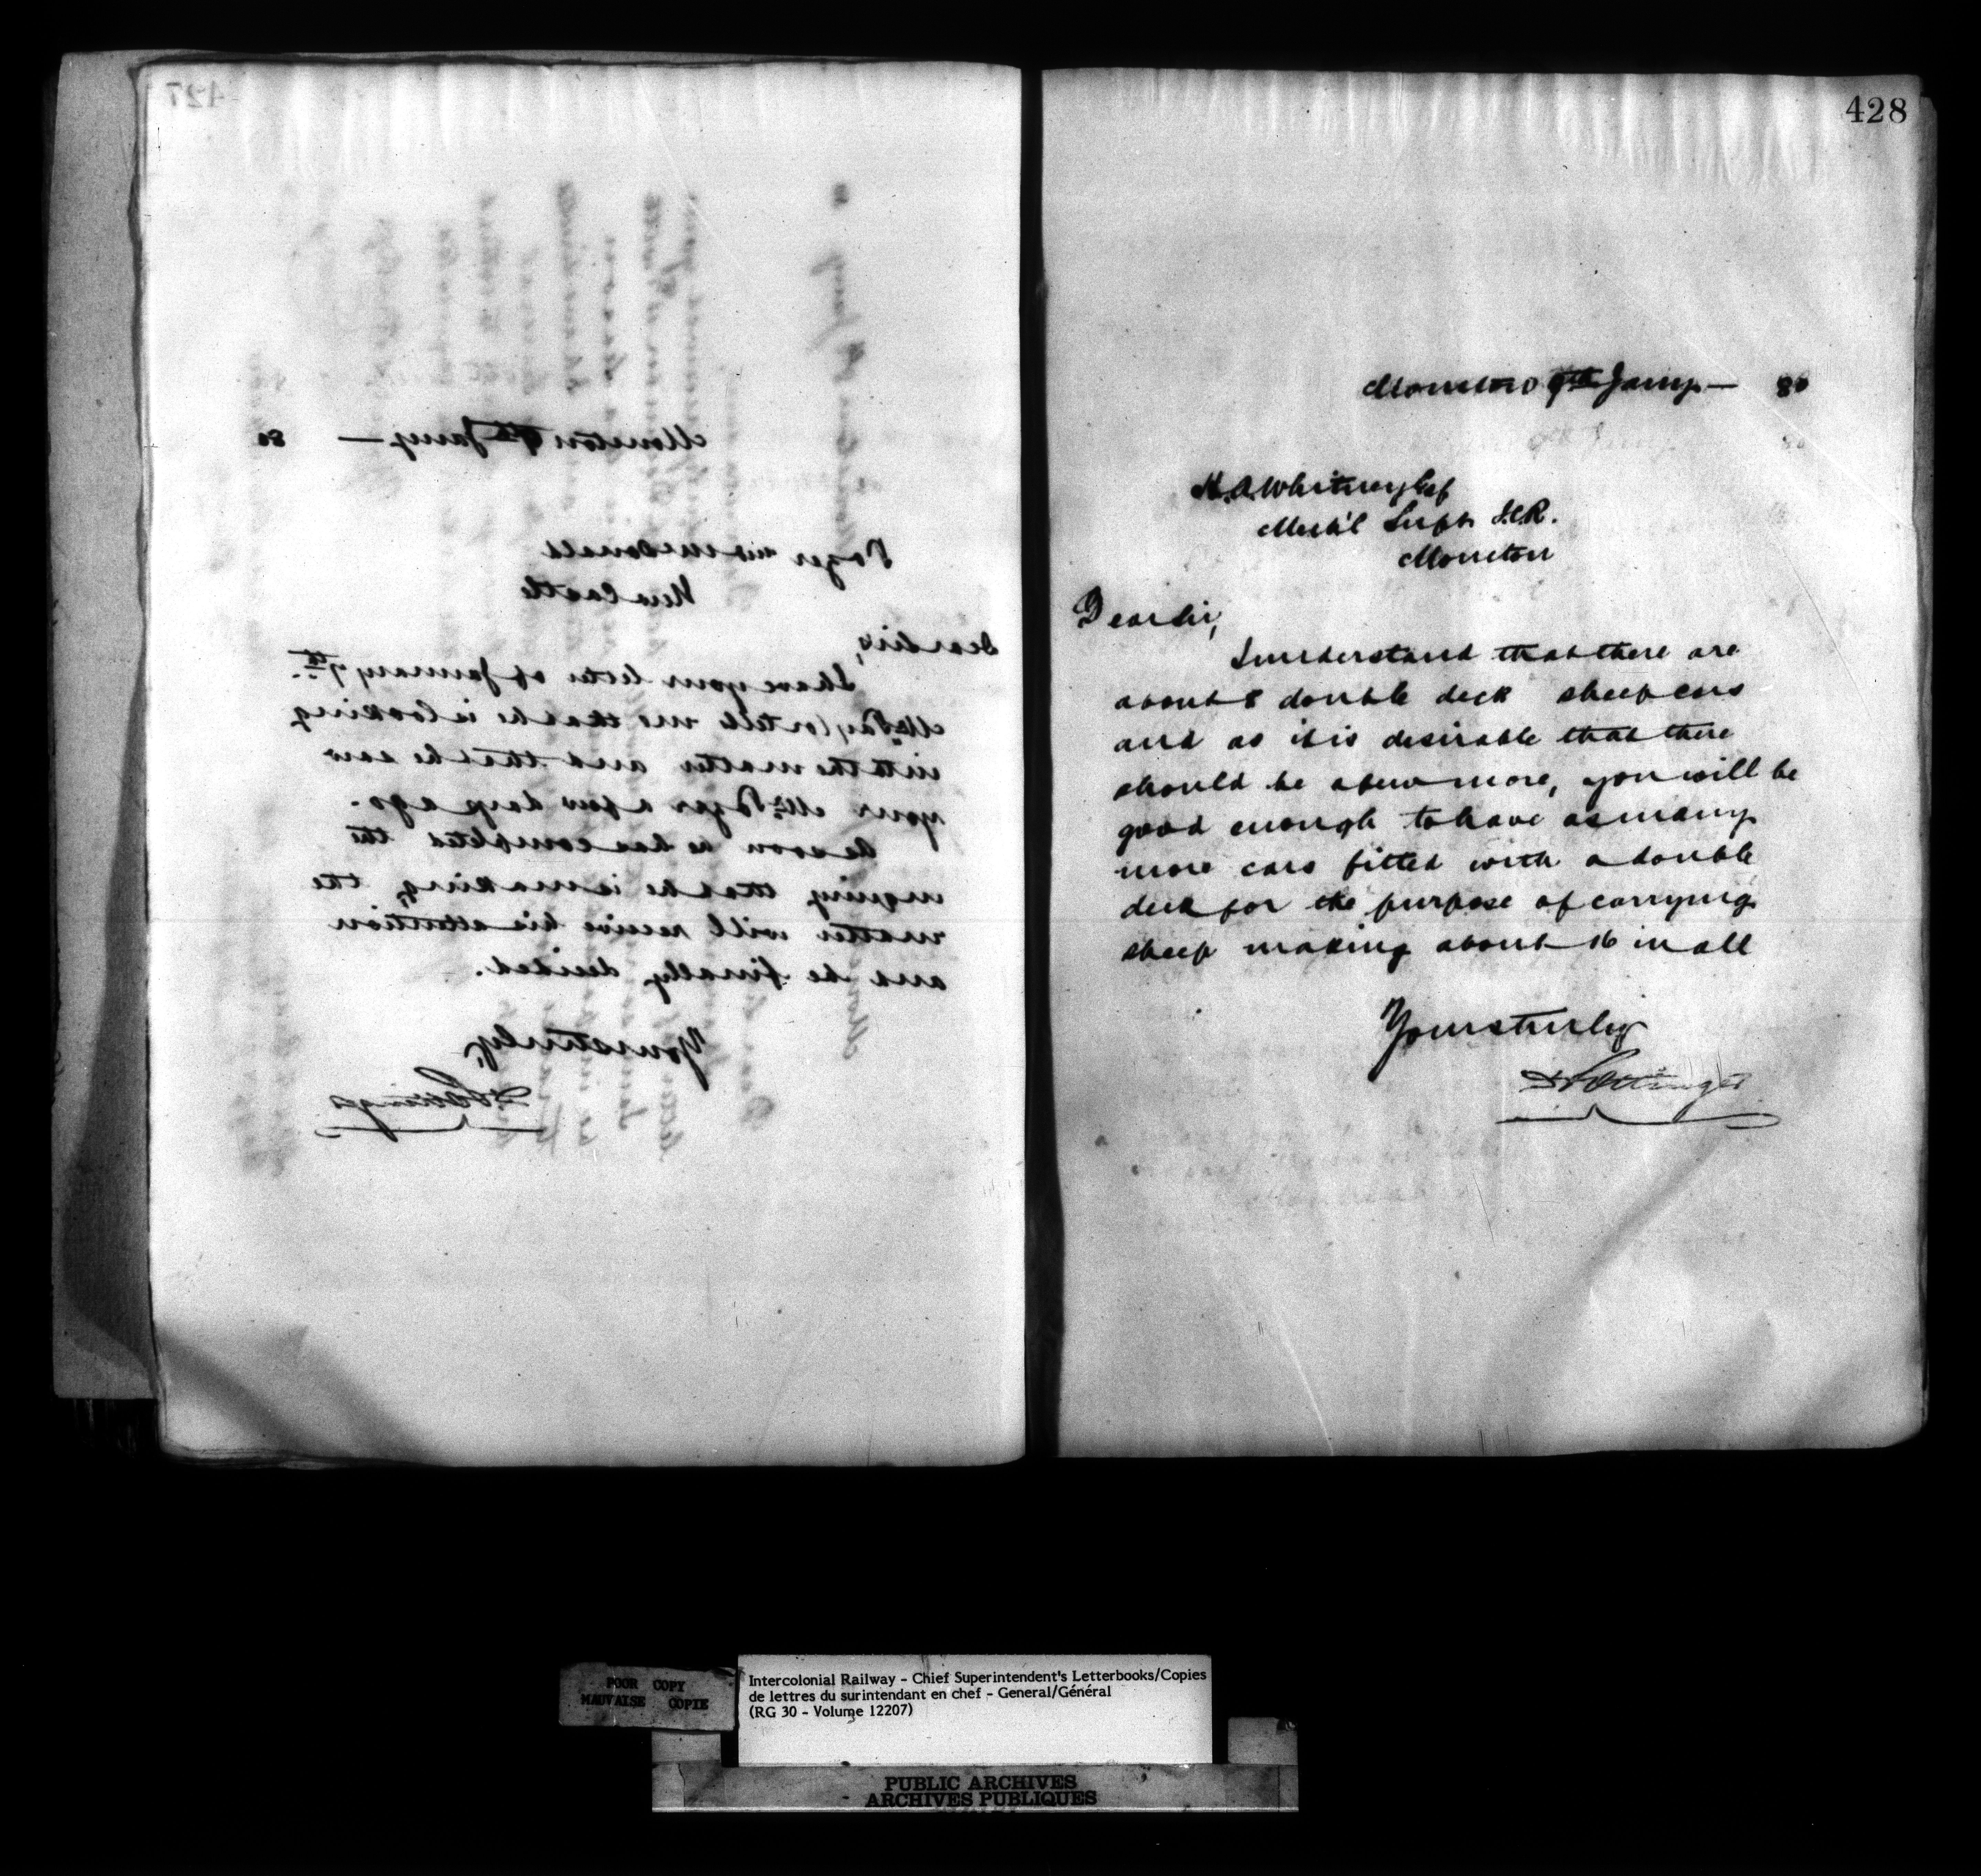 427
Moncton 9th Jany — 80
McDonald
New Castle
Dear Sirs,
I have your letter of January 7th.
Mr Taylor tells me that he is looking
into the matter and that he saw
your Mr a few days ago.
As soon as he has completed the
inquiry that he is making, the
matter will receive his attention
and be finally decided.
Yours truly,
D Pottinger
428
Moncton 9th Jany — 80
H.A. Whitney Esq
Mech'l Supt I.C.R.
Moncton
Dear Sir,
I understand that there are
about 8 double deck sheep cars
and as it is desirable that there
should be a few more, you will be
good enough to have as many
more cars fitted with a double
deck for the purpose of carrying
sheep making about 16 in all
Yours truly
D Pottinger
POOR COPY
MAUVAISE COPIE
Intercolonial Railway - Chief Superintendent's Letterbooks/Copies
de lettres du surintendant en chef - General/Général
(RG 30 - Volume 12207)
PUBLIC ARCHIVES
ARCHIVES PUBLIQUES